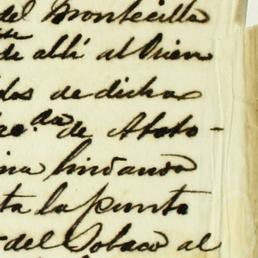 del Montecillo
de allí al Orien
dos de dicha
de Atoto-
lindando
ta la punta
del Tobaco al